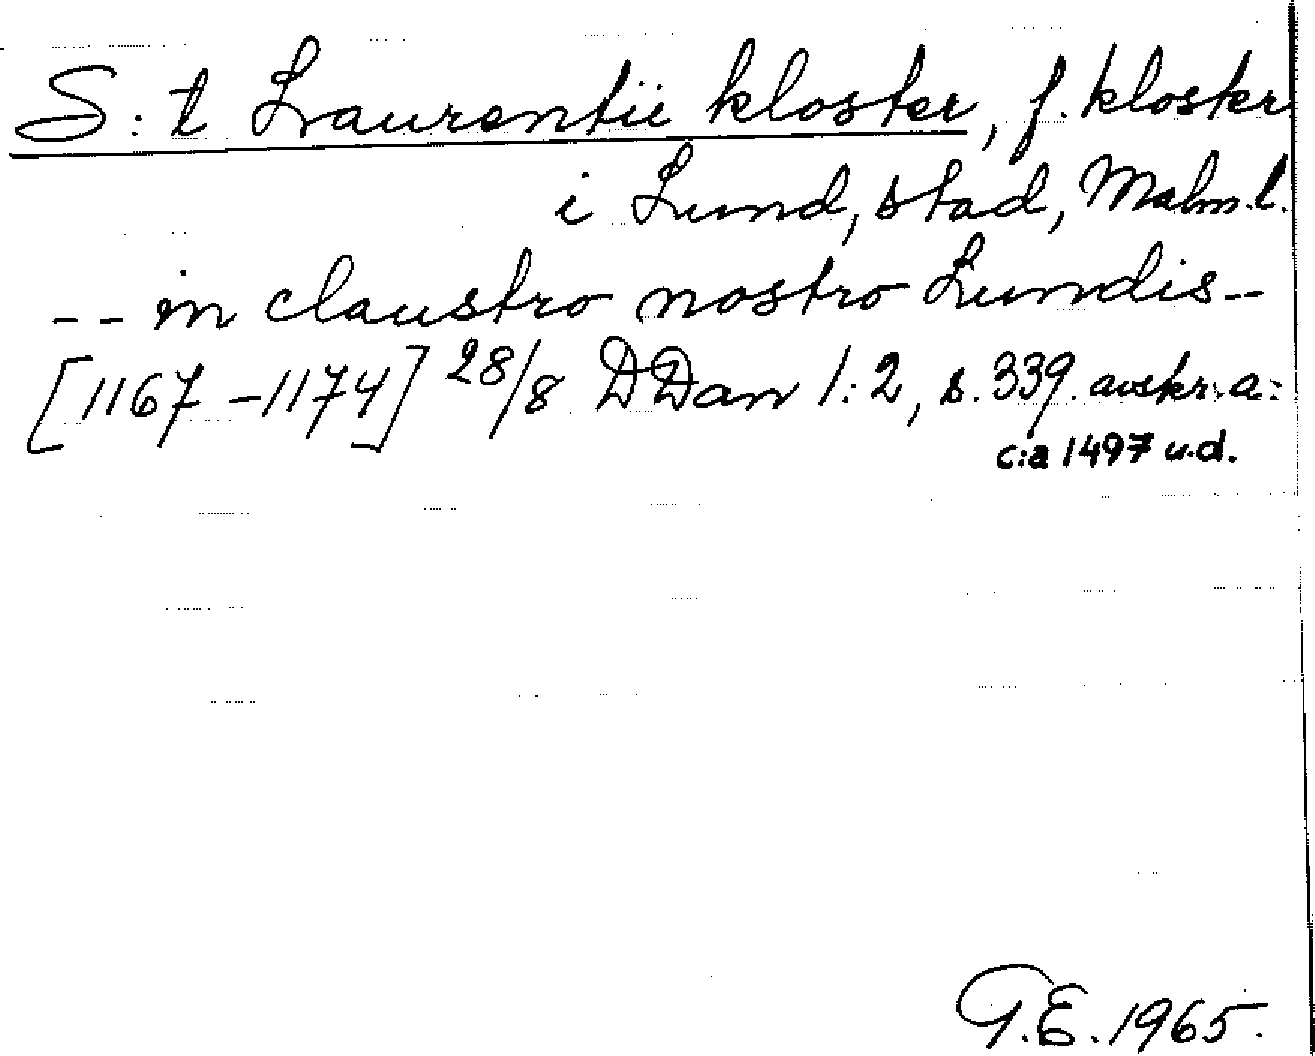 S:t Laurentii kloster, f. kloster
i Lund, stad, Malm.l.
-- in claustro nostro Lundis --
[1167-1174] 28/8 DDan 1:2, s. 339. avskr. a:
c:a 1497 u.d.
G.E. 1965.